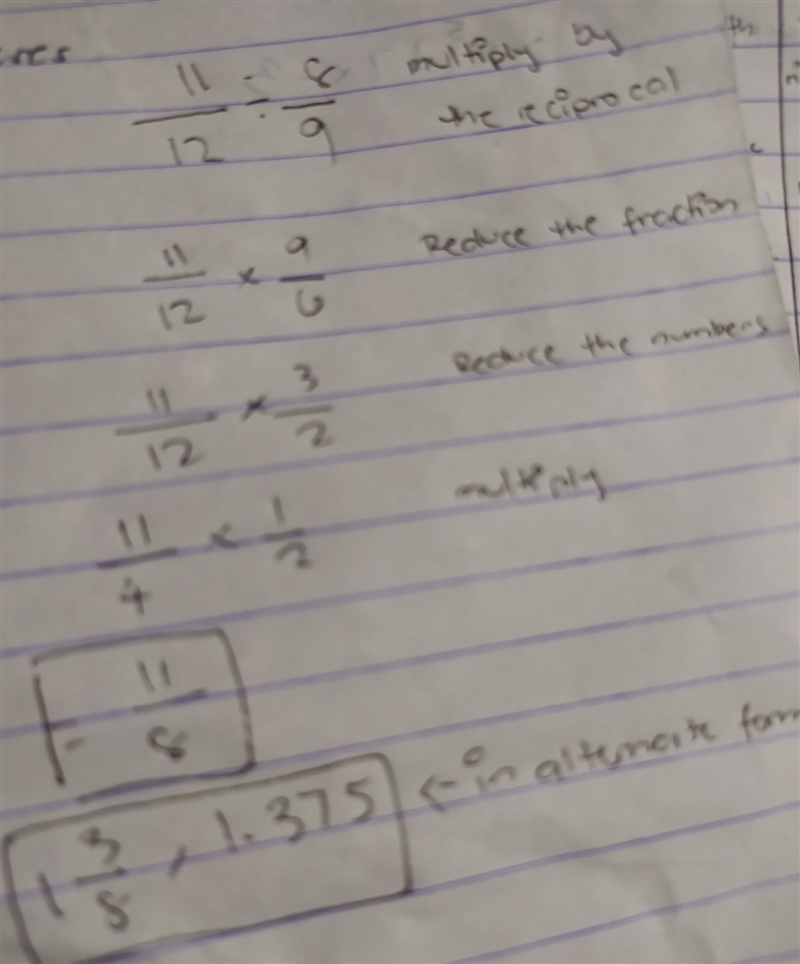 11/12 ÷ 8/9 multiply by
the reciprocal
11/12 × 9/6 Reduce the fraction
11/12 × 3/2 Reduce the numbers
11/4 × 1/2 multiply
= 11/8
1 3/8, 1.375 ← in alternate form